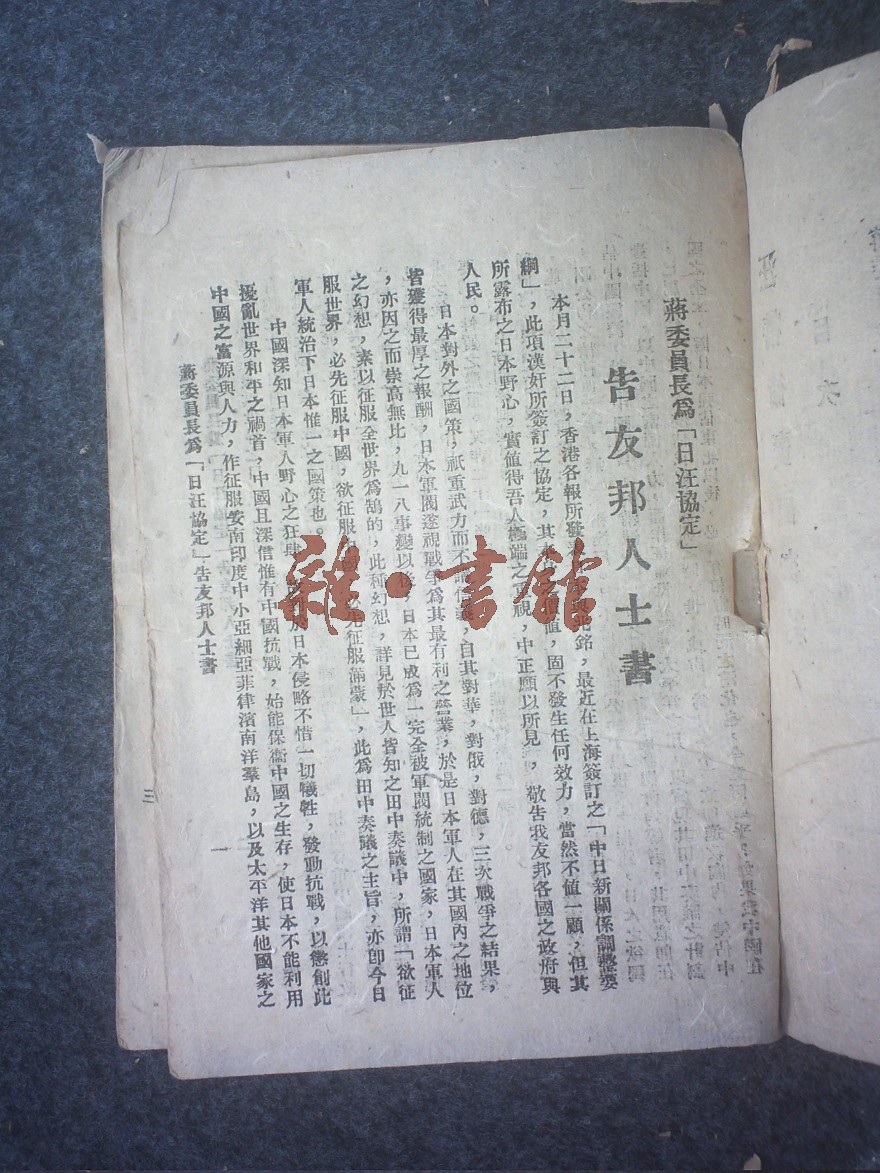 蔣委員長為「日汪協定」
告友邦人士書
本月二十二日，香港各報所發表
銘，最近在上海簽訂之「中日新關係調整要
綱」，此項漢奸所簽訂之協定，其本
值，固不發生任何效力，當然不值一顧，但其
所露布之日本野心，實值得吾人極端之
視，中正願以所見，敬告我友邦各國之政府與
人民。
日本對外之國策，祇重武力而不講信義，自其對華，對俄，對德，三次戰爭之結果，
皆獲得最厚之報酬，日本軍閥遂視戰爭爲其最有利之營業，於是日本軍人在其國內之地位
，亦因之而崇高無比，九一八事變以後，日本已成爲一完全被軍閥統制之國家，日本軍人
之幻想，素以征服全世界爲鵠的，此種幻想，詳見於世人皆知之田中奏議中，所謂「欲征
服世界，必先征服中國，欲征服中國，必先征服滿蒙」，此爲田中奏議之主旨，亦卽今日
軍人統治下日本惟一之國策也。
中國深知日本軍人野心之狂肆，
於日本侵略不惜一切犧牲，發動抗戰，以懲創此
擾亂世界和平之禍首，中國且深信惟有中國抗戰，始能保衞中國之生存，使日本不能利用
中國之富源與人力，作征服安南印度中小亞細亞菲律濱南洋羣島，以及太平洋其他國家之
蔣委員長爲「日汪協定」告友邦人士書
一
三
雜·書館